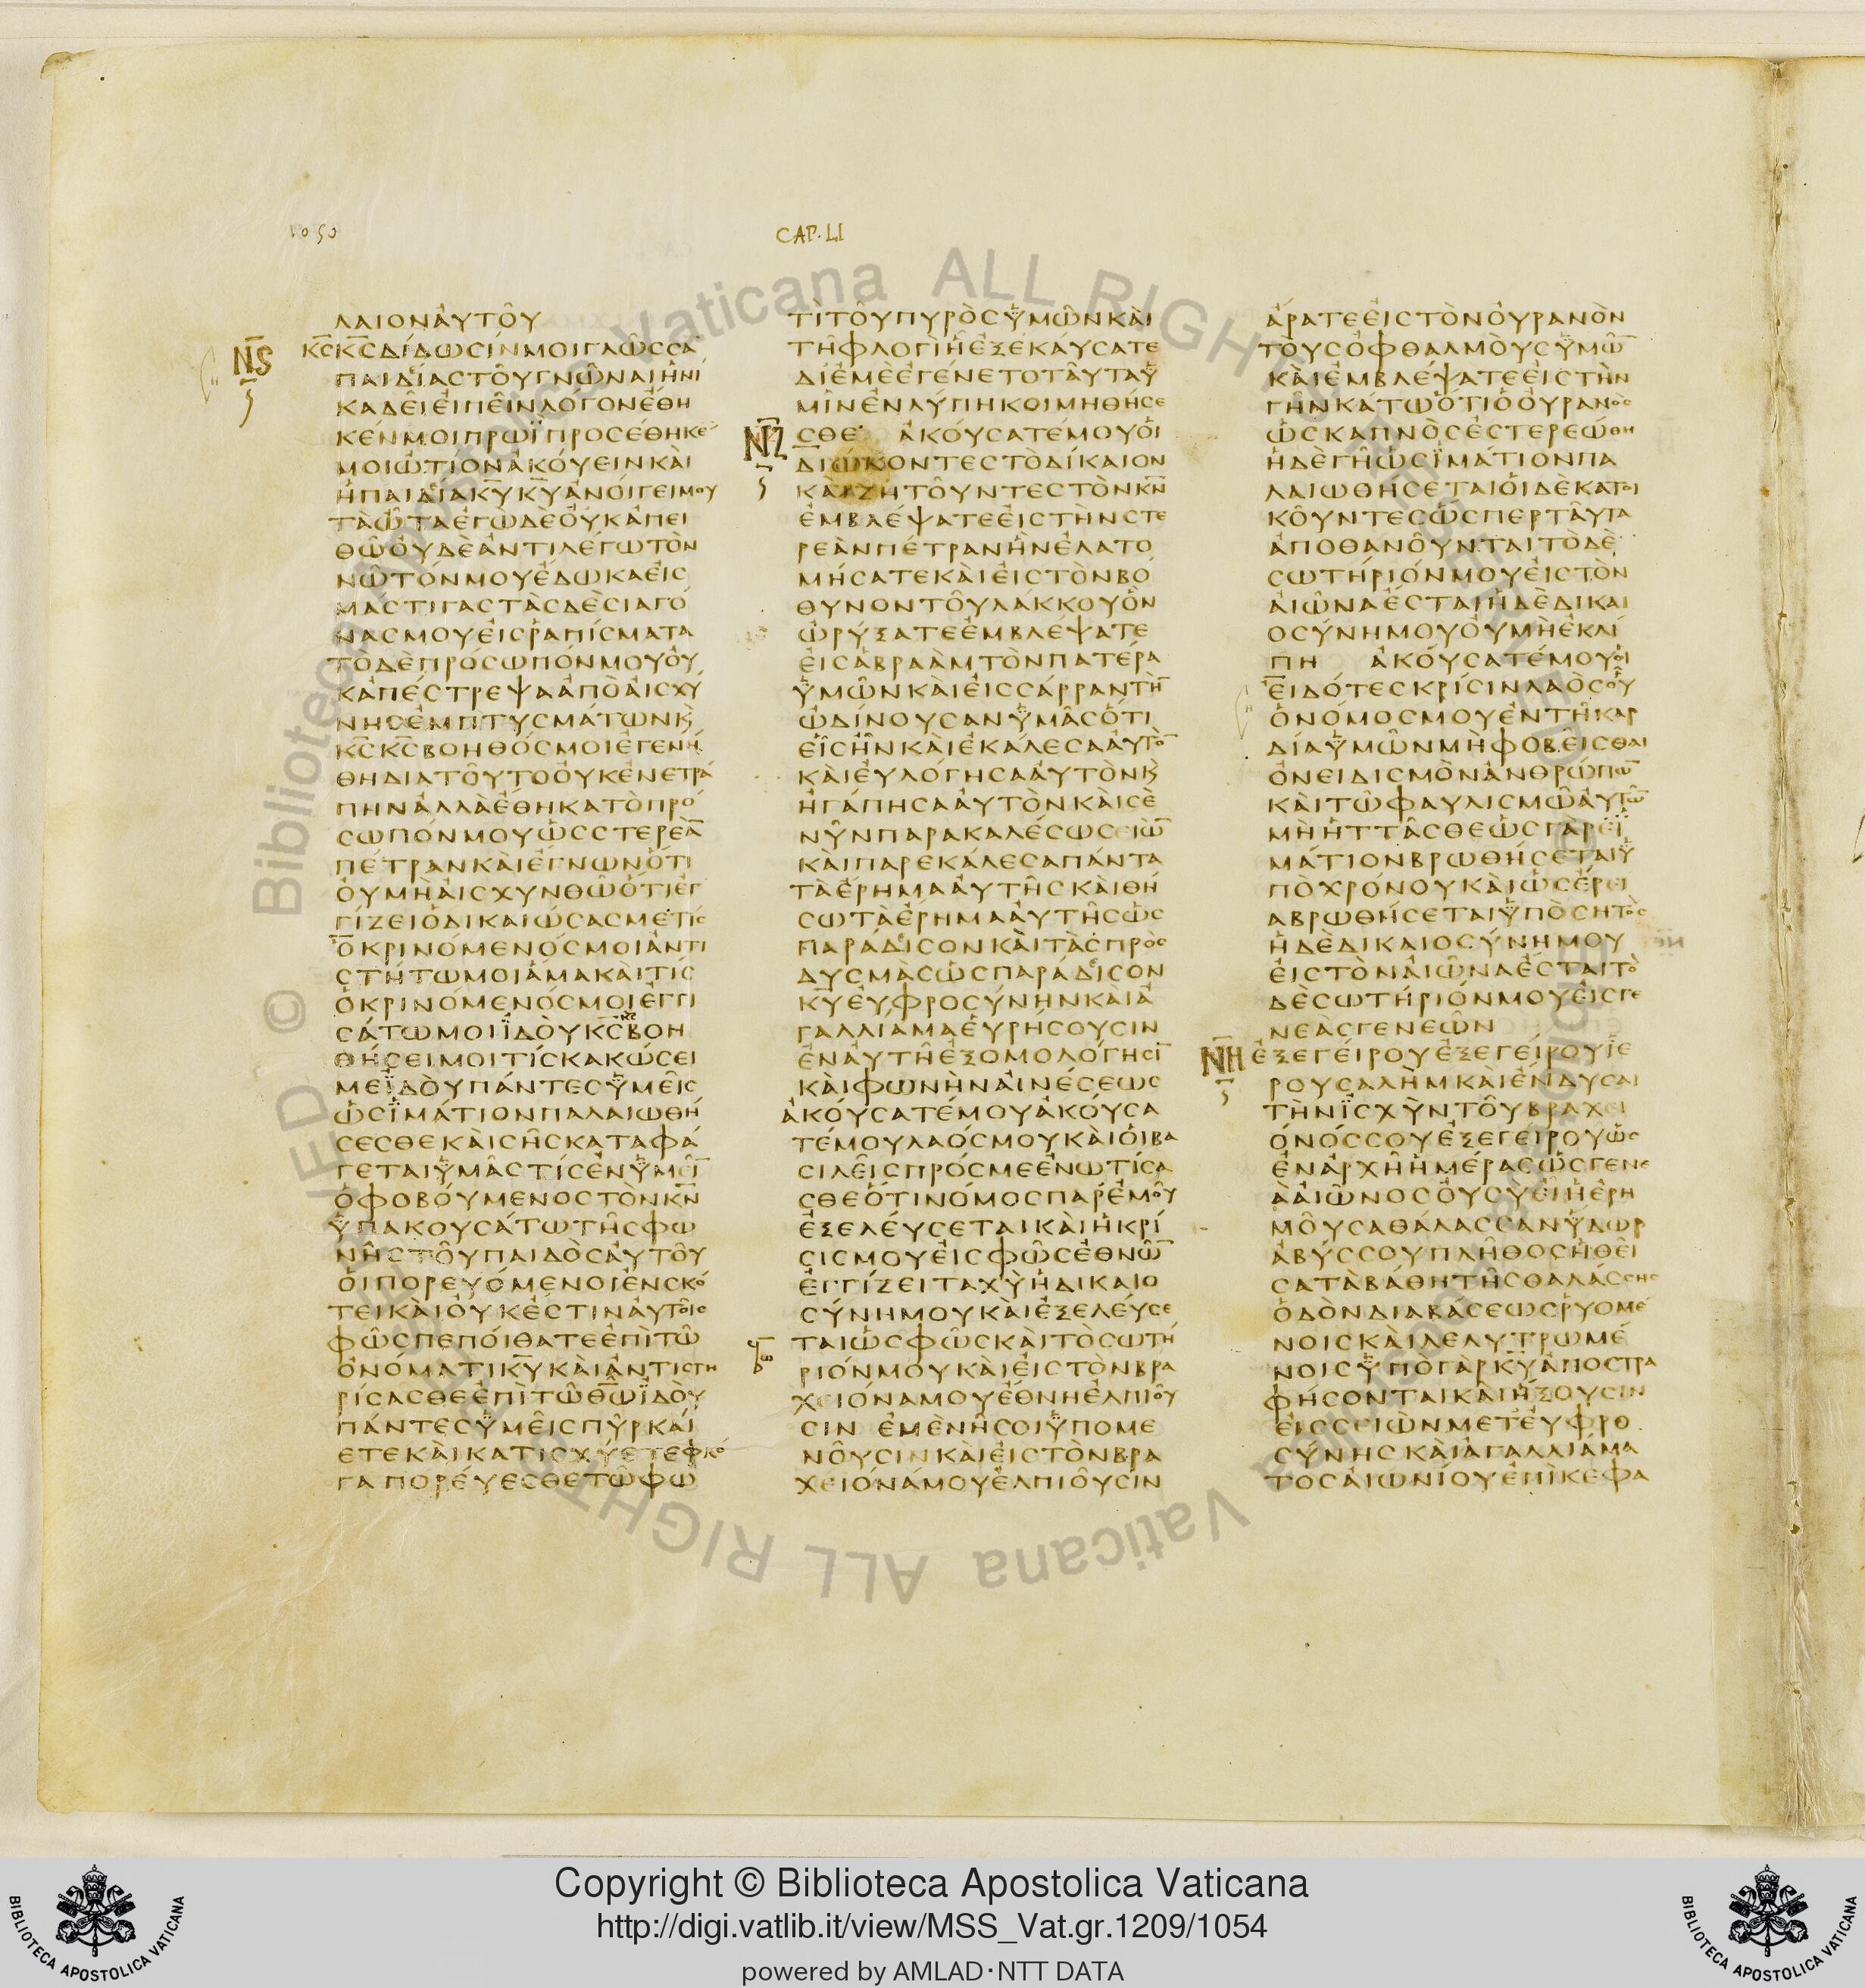 CAP. LI
ΛΑΙΟΝΑΥΤΟΥ
Ν̅Ϛ̅
Κ̅Ϲ̅Κ̅Ϲ̅ΔΙΔΩϹΙΝΜΟΙΓΛΩϹϹΑ̅
ΠΑΙΔΙΑϹΤΟΥΓΝΩΝΑΙΗΝΙ
ΚΑΔΕΙΕΙΠΕΙΝΛΟΓΟΝΕΘΗ
ΚΕΝΜΟΙΠΡΩΪΠΡΟϹΕΘΗΚΕ̅
ΜΟΙΩΤΙΟΝΑΚΟΥΕΙΝΚΑΙ
ΗΠΑΙΔΙΑΚ̅Υ̅Κ̅Υ̅ΑΝΟΙΓΕΙΜΟΥ
ΤΑΩΤΑΕΓΩΔΕΟΥΚΑΠΕΙ
ΘΩΟΥΔΕΑΝΤΙΛΕΓΩΤΟΝ
ΝΩΤΟΝΜΟΥΕΔΩΚΑΕΙϹ
ΜΑϹΤΙΓΑϹΤΑϹΔΕϹΙΑΓΟ
ΝΑϹΜΟΥΕΙϹΡΑΠΙϹΜΑΤΑ
ΤΟΔΕΠΡΟϹΩΠΟΝΜΟΥΟΥ
ΚΑΠΕϹΤΡΕΨΑΑΠΟΑΙϹΧΥ
ΝΗϹΕΜΠΤΥϹΜΑΤΩΝΚ̀
Κ̅Ϲ̅Κ̅Ϲ̅ΒΟΗΘΟϹΜΟΙΕΓΕΝΗ
ΘΗΔΙΑΤΟΥΤΟΟΥΚΕΝΕΤΡΑ
ΠΗΝΑΛΛΑΕΘΗΚΑΤΟΠΡΟ
ϹΩΠΟΝΜΟΥΩϹϹΤΕΡΕΑ̅
ΠΕΤΡΑΝΚΑΙΕΓΝΩΝΟΤΙ
ΟΥΜΗΑΙϹΧΥΝΘΩΟΤΙΕΓ
ΓΙΖΕΙΟΔΙΚΑΙΩϹΑϹΜΕΤΙϹ
ΟΚΡΙΝΟΜΕΝΟϹΜΟΙΑΝΤΙ
ϹΤΗΤΩΜΟΙΑΜΑΚΑΙΤΙϹ
ΟΚΡΙΝΟΜΕΝΟϹΜΟΙΕΓΓΙ
ϹΑΤΩΜΟΙΪΔΟΥΚ̅Ϲ̅ΒΟΗ
ΘΗϹΕΙΜΟΙΤΙϹΚΑΚΩϹΕΙ
ΜΕΪΔΟΥΠΑΝΤΕϹΫΜΕΙϹ
ΩϹΪΜΑΤΙΟΝΠΑΛΑΙΩΘΗ
ϹΕϹΘΕΚΑΙϹΗϹΚΑΤΑΦΑ
ΓΕΤΑΙΫΜΑϹΤΙϹΕΝΫΜΕΙ̅
ΟΦΟΒΟΥΜΕΝΟϹΤΟΝΚ̅Ν̅
ΫΠΑΚΟΥϹΑΤΩΤΗϹΦΩ
ΝΗϹΤΟΥΠΑΙΔΟϹΑΥΤΟΥ
ΟΙΠΟΡΕΥΟΜΕΝΟΙΕΝϹΚΟ
ΤΕΙΚΑΙΟΥΚΕϹΤΙΝΑΥΤΟΙϹ
ΦΩϹΠΕΠΟΙΘΑΤΕΕΠΙΤΩ
ΟΝΟΜΑΤΙΚ̅Υ̅ΚΑΙΑΝΤΙϹΤΗ
ΡΙϹΑϹΘΕΕΠΙΤΩΘ̅Ω̅ΪΔΟΥ
ΠΑΝΤΕϹΫΜΕΙϹΠΥΡΚΑΙ
ΕΤΕΚΑΙΚΑΤΙϹΧΥΕΤΕΦΛΟ
ΓΑΠΟΡΕΥΕϹΘΕΤΩΦΩ
ΤΙΤΟΥΠΥΡΟϹΫΜΩΝΚΑΙ
ΤΗΦΛΟΓΙΗΕΞΕΚΑΥϹΑΤΕ
ΔΙΕΜΕΕΓΕΝΕΤΟΤΑΥΤΑΫ
ΜΙΝΕΝΛΥΠΗΚΟΙΜΗΘΗϹΕ
Ν̅Ζ̅
ϹΘΕ ΑΚΟΥϹΑΤΕΜΟΥΟΙ
ΔΙΩΚΟΝΤΕϹΤΟΔΙΚΑΙΟΝ
ΚΑΙΖΗΤΟΥΝΤΕϹΤΟΝΚ̅Ν̅
ΕΜΒΛΕΨΑΤΕΕΙϹΤΗΝϹΤΕ
ΡΕΑΝΠΕΤΡΑΝΗΝΕΛΑΤΟ
ΜΗϹΑΤΕΚΑΙΕΙϹΤΟΝΒΟ
ΘΥΝΟΝΤΟΥΛΑΚΚΟΥΟΝ
ΩΡΥΞΑΤΕΕΜΒΛΕΨΑΤΕ
ΕΙϹΑΒΡΑΑΜΤΟΝΠΑΤΕΡΑ
ΫΜΩΝΚΑΙΕΙϹϹΑΡΡΑΝΤΗ̅
ΩΔΙΝΟΥϹΑΝΫΜΑϹΟΤΙ
ΕΙϹΗΝΚΑΙΕΚΑΛΕϹΑΑΥΤΟ̅
ΚΑΙΕΥΛΟΓΗϹΑΑΥΤΟΝΚ̀
ΗΓΑΠΗϹΑΑΥΤΟΝΚΑΙϹΕ
ΝΥΝΠΑΡΑΚΑΛΕϹΩϹΕΙΩ̅
ΚΑΙΠΑΡΕΚΑΛΕϹΑΠΑΝΤΑ
ΤΑΕΡΗΜΑΑΥΤΗϹΚΑΙΘΗ
ϹΩΤΑΕΡΗΜΑΑΥΤΗϹΩϹ
ΠΑΡΑΔΙϹΟΝΚΑΙΤΑϹΠΡΟϹ
ΔΥϹΜΑϹΩϹΠΑΡΑΔΙϹΟΝ
Κ̅Υ̅ΕΥΦΡΟϹΥΝΗΝΚΑΙΑ
ΓΑΛΛΙΑΜΑΕΥΡΗϹΟΥϹΙΝ
ΕΝΑΥΤΗΕΞΟΜΟΛΟΓΗϹΙ̅
ΚΑΙΦΩΝΗΝΑΙΝΕϹΕΩϹ
ΑΚΟΥϹΑΤΕΜΟΥΑΚΟΥϹΑ
ΤΕΜΟΥΛΑΟϹΜΟΥΚΑΙΟΙΒΑ
ϹΙΛΕΙϹΠΡΟϹΜΕΕΝΩΤΙϹΑ
ϹΘΕΟΤΙΝΟΜΟϹΠΑΡΕΜΟΥ
ΕΞΕΛΕΥϹΕΤΑΙΚΑΙΗΚΡΙ
ϹΙϹΜΟΥΕΙϹΦΩϹΕΘΝΩ̅
ΕΓΓΙΖΕΙΤΑΧΥΗΔΙΚΑΙΟ
ϹΥΝΗΜΟΥΚΑΙΕΞΕΛΕΥϹΕ
ΤΑΙΩϹΦΩϹΚΑΙΤΟϹΩΤΗ
ΡΙΟΝΜΟΥΚΑΙΕΙϹΤΟΝΒΡΑ
ΧΕΙΟΝΑΜΟΥΕΘΝΗΕΛΠΙΟΥ
ϹΙΝ ΕΜΕΝΗϹΟΙΫΠΟΜΕ
ΝΟΥϹΙΝΚΑΙΕΙϹΤΟΝΒΡΑ
ΧΕΙΟΝΑΜΟΥΕΛΠΙΟΥϹΙΝ
ΑΡΑΤΕΕΙϹΤΟΝΟΥΡΑΝΟΝ
ΤΟΥϹΟΦΘΑΛΜΟΥϹΫΜΩ̅
ΚΑΙΕΜΒΛΕΨΑΤΕΕΙϹΤΗΝ
ΓΗΝΚΑΤΩΟΤΙΟΟΥΡΑΝΟϹ
ΩϹΚΑΠΝΟϹΕϹΤΕΡΕΩΘΗ
ΗΔΕΓΗΩϹΪΜΑΤΙΟΝΠΑ
ΛΑΙΩΘΗϹΕΤΑΙΟΙΔΕΚΑΤΟΙ
ΚΟΥΝΤΕϹΩϹΠΕΡΤΑΥΤΑ
ΑΠΟΘΑΝΟΥΝΤΑΙΤΟΔΕ
ϹΩΤΗΡΙΟΝΜΟΥΕΙϹΤΟΝ
ΑΙΩΝΑΕϹΤΑΙΗΔΕΔΙΚΑΙ
ΟϹΥΝΗΜΟΥΟΥΜΗΕΚΛΙ
ΠΗ ΑΚΟΥϹΑΤΕΜΟΥΟΙ
ΕΙΔΟΤΕϹΚΡΙϹΙΝΛΑΟϹΟΥ
ΟΝΟΜΟϹΜΟΥΕΝΤΗΚΑΡ
ΔΙΑΫΜΩΝΜΗΦΟΒΕΙϹΘΑΙ
ΟΝΕΙΔΙϹΜΟΝΑΝΘΡΩΠΩ̅
ΚΑΙΤΩΦΑΥΛΙϹΜΩΑΥΤΩ̅
ΜΗΗΤΤΑϹΘΕΩϹΓΑΡΕΪ
ΜΑΤΙΟΝΒΡΩΘΗϹΕΤΑΙΫ
ΠΟΧΡΟΝΟΥΚΑΙΩϹΕΡΕΙ
ΑΒΡΩΘΗϹΕΤΑΙΫΠΟϹΗΤΟϹ
ΗΔΕΔΙΚΑΙΟϹΥΝΗΜΟΥ
ΕΙϹΤΟΝΑΙΩΝΑΕϹΤΑΙΤΟ
ΔΕϹΩΤΗΡΙΟΝΜΟΥΕΙϹΓΕ
ΝΕΑϹΓΕΝΕΩΝ
Ν̅Η̅
ΕΞΕΓΕΙΡΟΥΕΞΕΓΕΙΡΟΥΪΕ
ΡΟΥϹΑΛΗΜΚΑΙΕΝΔΥϹΑΙ
ΤΗΝΪϹΧΥΝΤΟΥΒΡΑΧΕΙ
ΟΝΟϹϹΟΥΕΞΕΓΕΙΡΟΥΩϹ
ΕΝΑΡΧΗΗΜΕΡΑϹΩϹΓΕΝΕ
ΑΑΙΩΝΟϹΟΥϹΥΕΙΗΕΡΗ
ΜΟΥϹΑΘΑΛΑϹϹΑΝΫΔΩΡ
ΑΒΥϹϹΟΥΠΛΗΘΟϹΗΘΕΙ
ϹΑΤΑΒΑΘΗΤΗϹΘΑΛΑϹϹΗϹ
ΟΔΟΝΔΙΑΒΑϹΕΩϹΡΥΟΜΕ
ΝΟΙϹΚΑΙΛΕΛΥΤΡΩΜΕ
ΝΟΙϹΫΠΟΓΑΡΚ̅Υ̅ΑΠΟϹΤΡΑ
ΦΗϹΟΝΤΑΙΚΑΙΗΞΟΥϹΙΝ
ΕΙϹϹΕΙΩΝΜΕΤΕΥΦΡΟ
ϹΥΝΗϹΚΑΙΑΓΑΛΛΙΑΜΑ
ΤΟϹΑΙΩΝΙΟΥΕΠΙΚΕΦΑ
Copyright © Biblioteca Apostolica Vaticana
http://digi.vatlib.it/view/MSS_Vat.gr.1209/1054
powered by AMLAD·NTT DATA
BIBLIOTECA APOSTOLICA VATICANA
BIBLIOTECA APOSTOLICA VATICANA